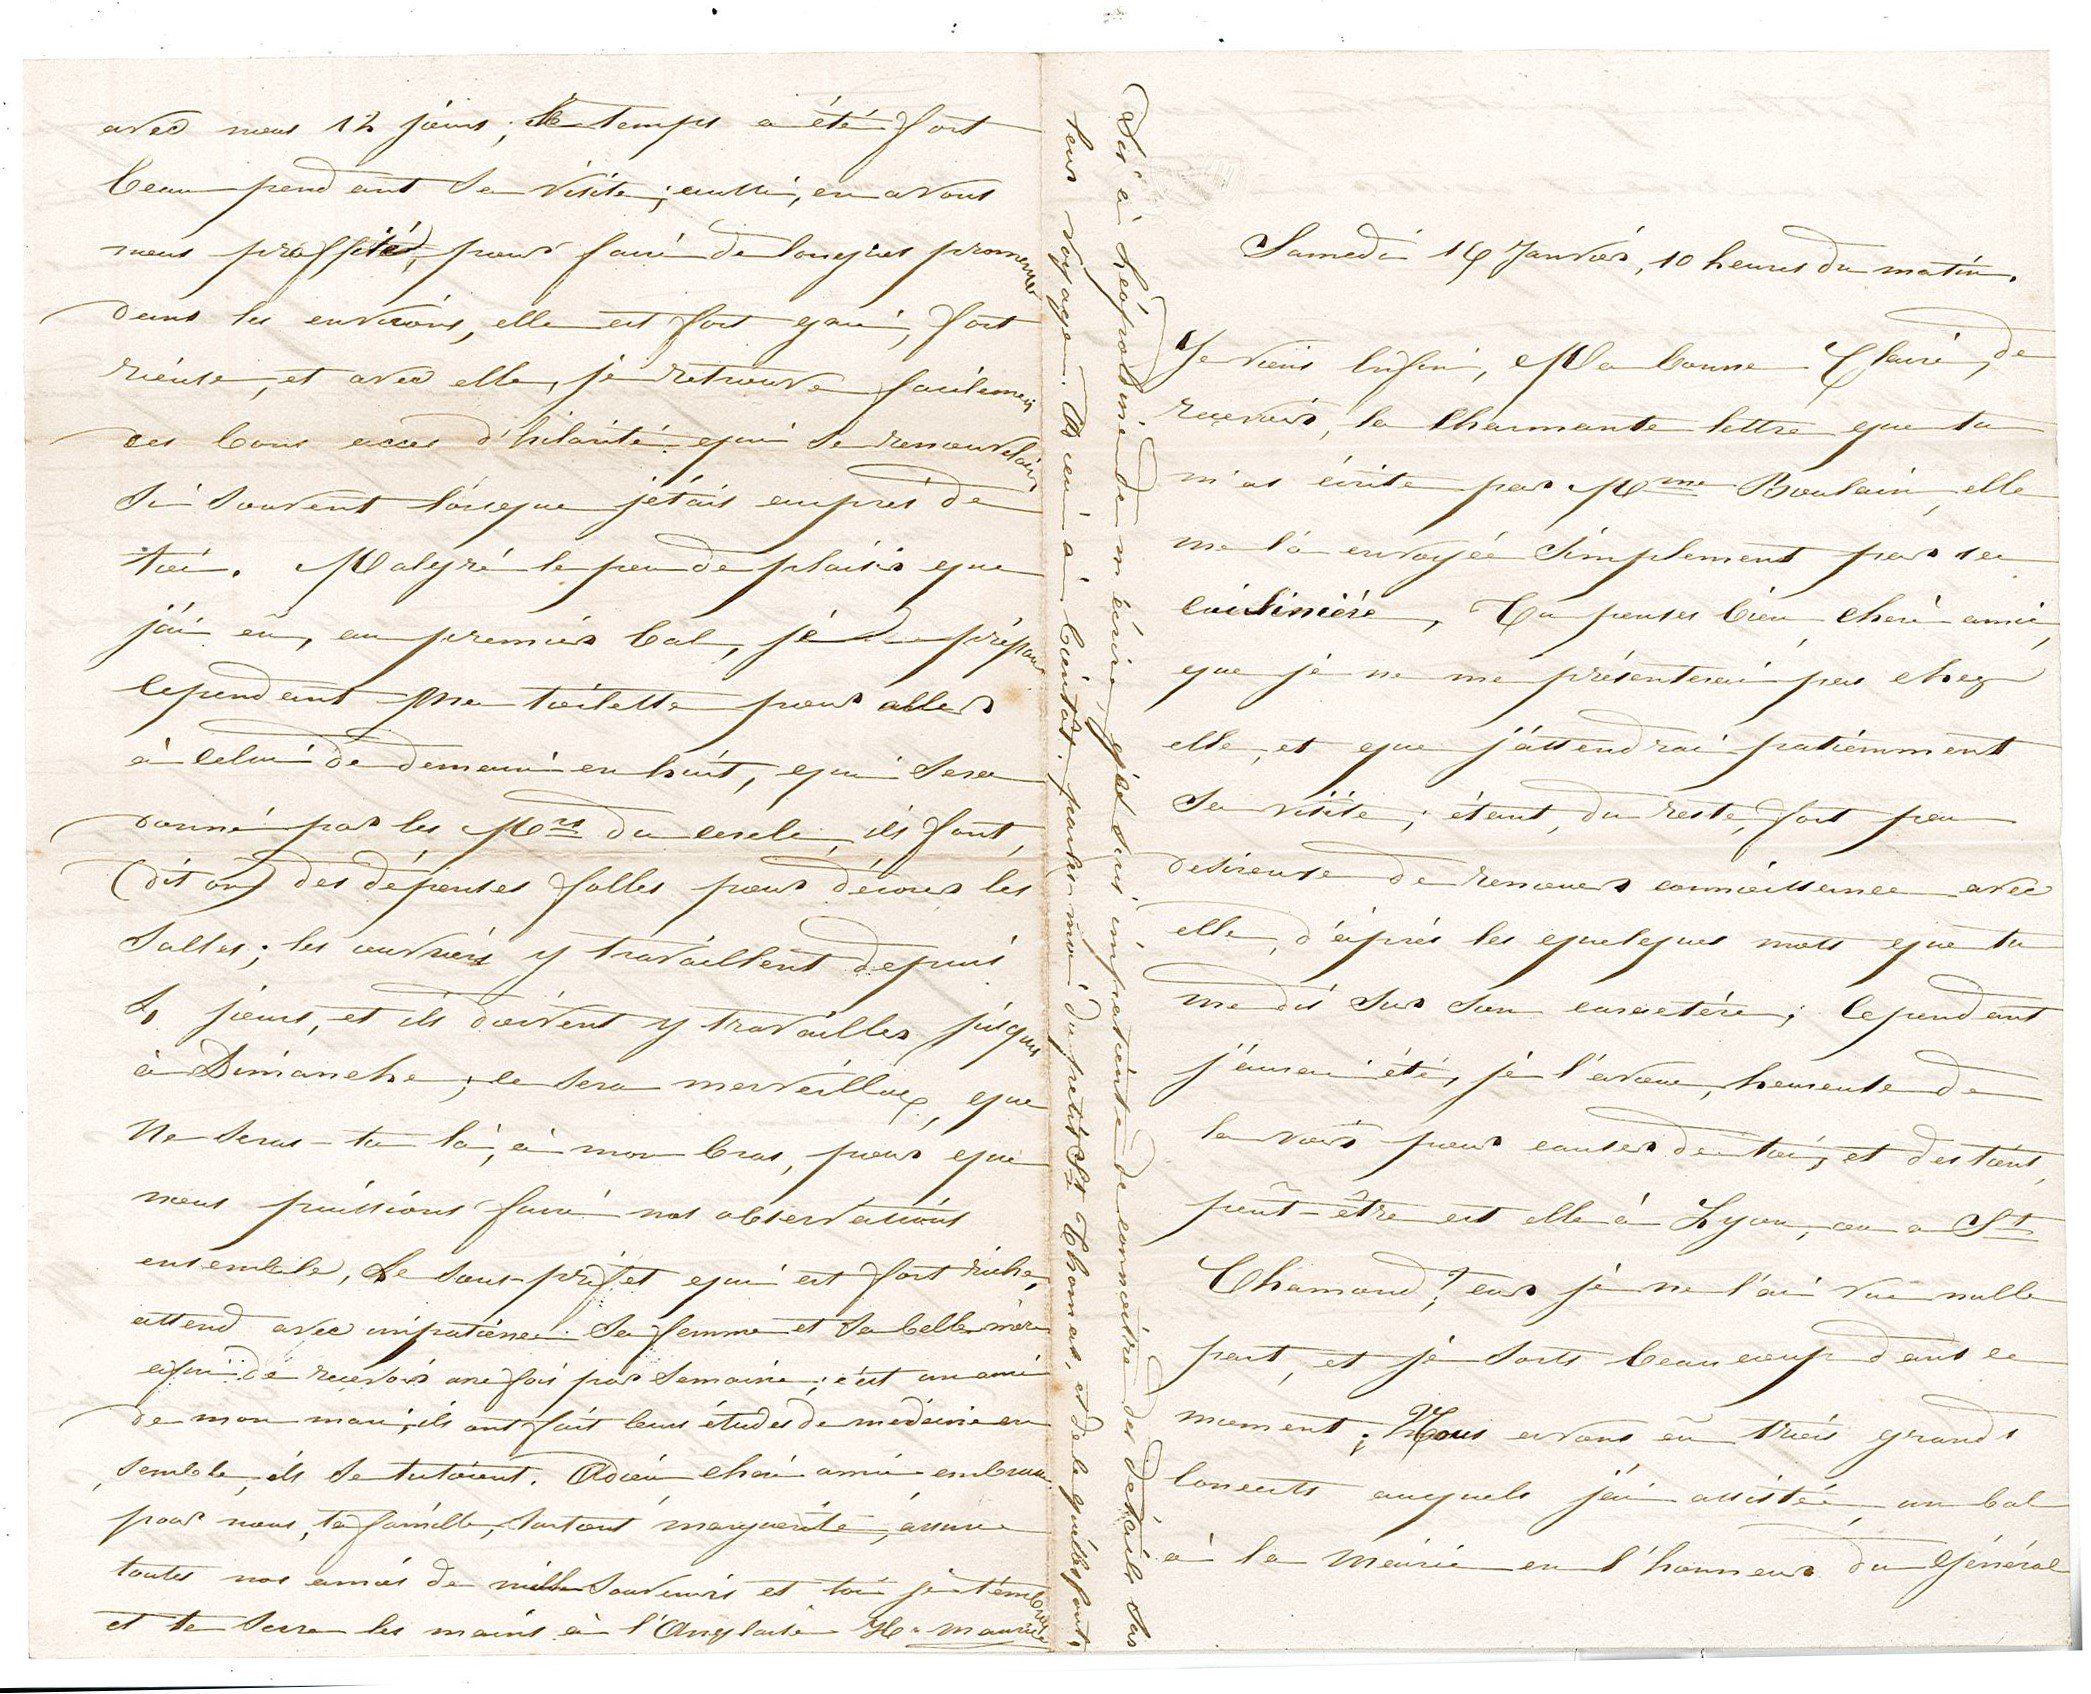 Samedi 14 Janvier, 10 heures du matin.
Je viens Enfin, Ma bonne Claire, de
recevoir, la Charmante lettre que tu
m'as écrite par Mme Boulain, elle
me l'a envoyée Simplement par sa
Cuisinière, Tu penses bien, Chère amie,
que je ne me présenterai pas chez
elle, et que j'attendrai patiemment
Sa visite; étant, du reste, fort peu
desireuse de renouer connaissance avec
elle, d'après les quelques mots que tu
me dis Sur Son caractère; Cependant
j'aurai été, je l'avoue, heureuse de
la voir pour causer de toi, et des tiens,
peut-être est elle à Lyon, ou a St
Chamond? car je ne l'ai vue nulle
part, et je Sorts beaucoup dans ce
moment; Nous avons eû trois grands
Concerts auquels j'ai assistée, un bal
à la Mairie en l'honneur du Général
avec nous 12 jours; le temps a été fort
beau pendant Sa visite; aussi, en avons
nous proffité, pour faire de longues promenades
dans les environs, elle est fort gaie, fort
rieuse, et avec elle, je retrouve facilement
ces bons acces d'hilarité qui Se renouvelaient
Si Souvent lorsque j'étais auprès de
toi. Malgré le peu de plaisir que
j'ai eû, au premier bal, je prépare
Cependant Ma toilette pour aller
à Celui de demain en huit, qui Sera
donné par les Mrs du cercle, ils font,
(dit on) des dépenses folles pour décorer les
Salles; les ouvriers y travaillent depuis
jours, et ils doivent y travailler jusques
à Dimanche; ce Sera merveilleux, que
Ne Seras-tu là, à mon bras, pour que
nous puissions faire nos observations
ensemble, Le Sous-préfet qui est fort riche,
attend avec impatience Sa femme et Sa belle mère
afin de recevoir une fois par Semaine; c'est un ami
de mon mari, ils ont fait leurs études de médecine en
semble, ils Se tutoient. Adieu, chère amie embrasse
pour nous, ta famille, Surtout marguerite, assure
toutes nos amies de mille Souvenirs et toi je t'embrasse
et te Serre les mains à l'Anglaise H. Maurice
Dis à Léopold de m'écrire, que Suis impatiente de connaître des détails Sur
Son voyage. Adieu à bientôt. parles-moi du petit St Thomas, et de la quête font,